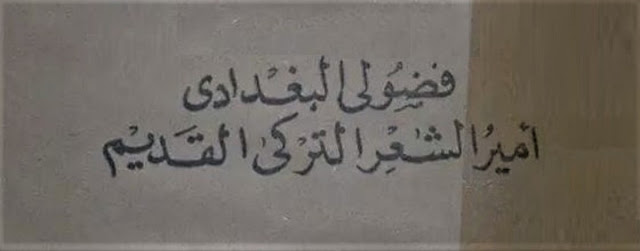 فضُولى البغْدادى
أميرُ الشعْر التركىٰ القَديْم